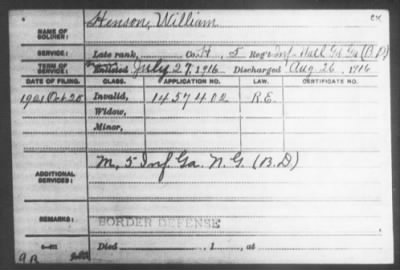 Henson, William
NAME OF SOLDIER:
SERVICE: Late rank, Co. H, 5 Reg't Inf. Natl Gd Ga (B.D)
TERM OF SERVICE: Enlisted July 27, 1916 Discharged Aug 26, 1916
DATE OF FILING. CLASS. APPLICATION NO. LAW. CERTIFICATE NO.
1921 Oct 20 Invalid, 1457402 R.E.
Widow,
Minor,
M, 5 Inf. Ga. N. G. (B.D)
ADDITIONAL SERVICES:
REMARKS: BORDER DEFENSE
Died , 1 , at